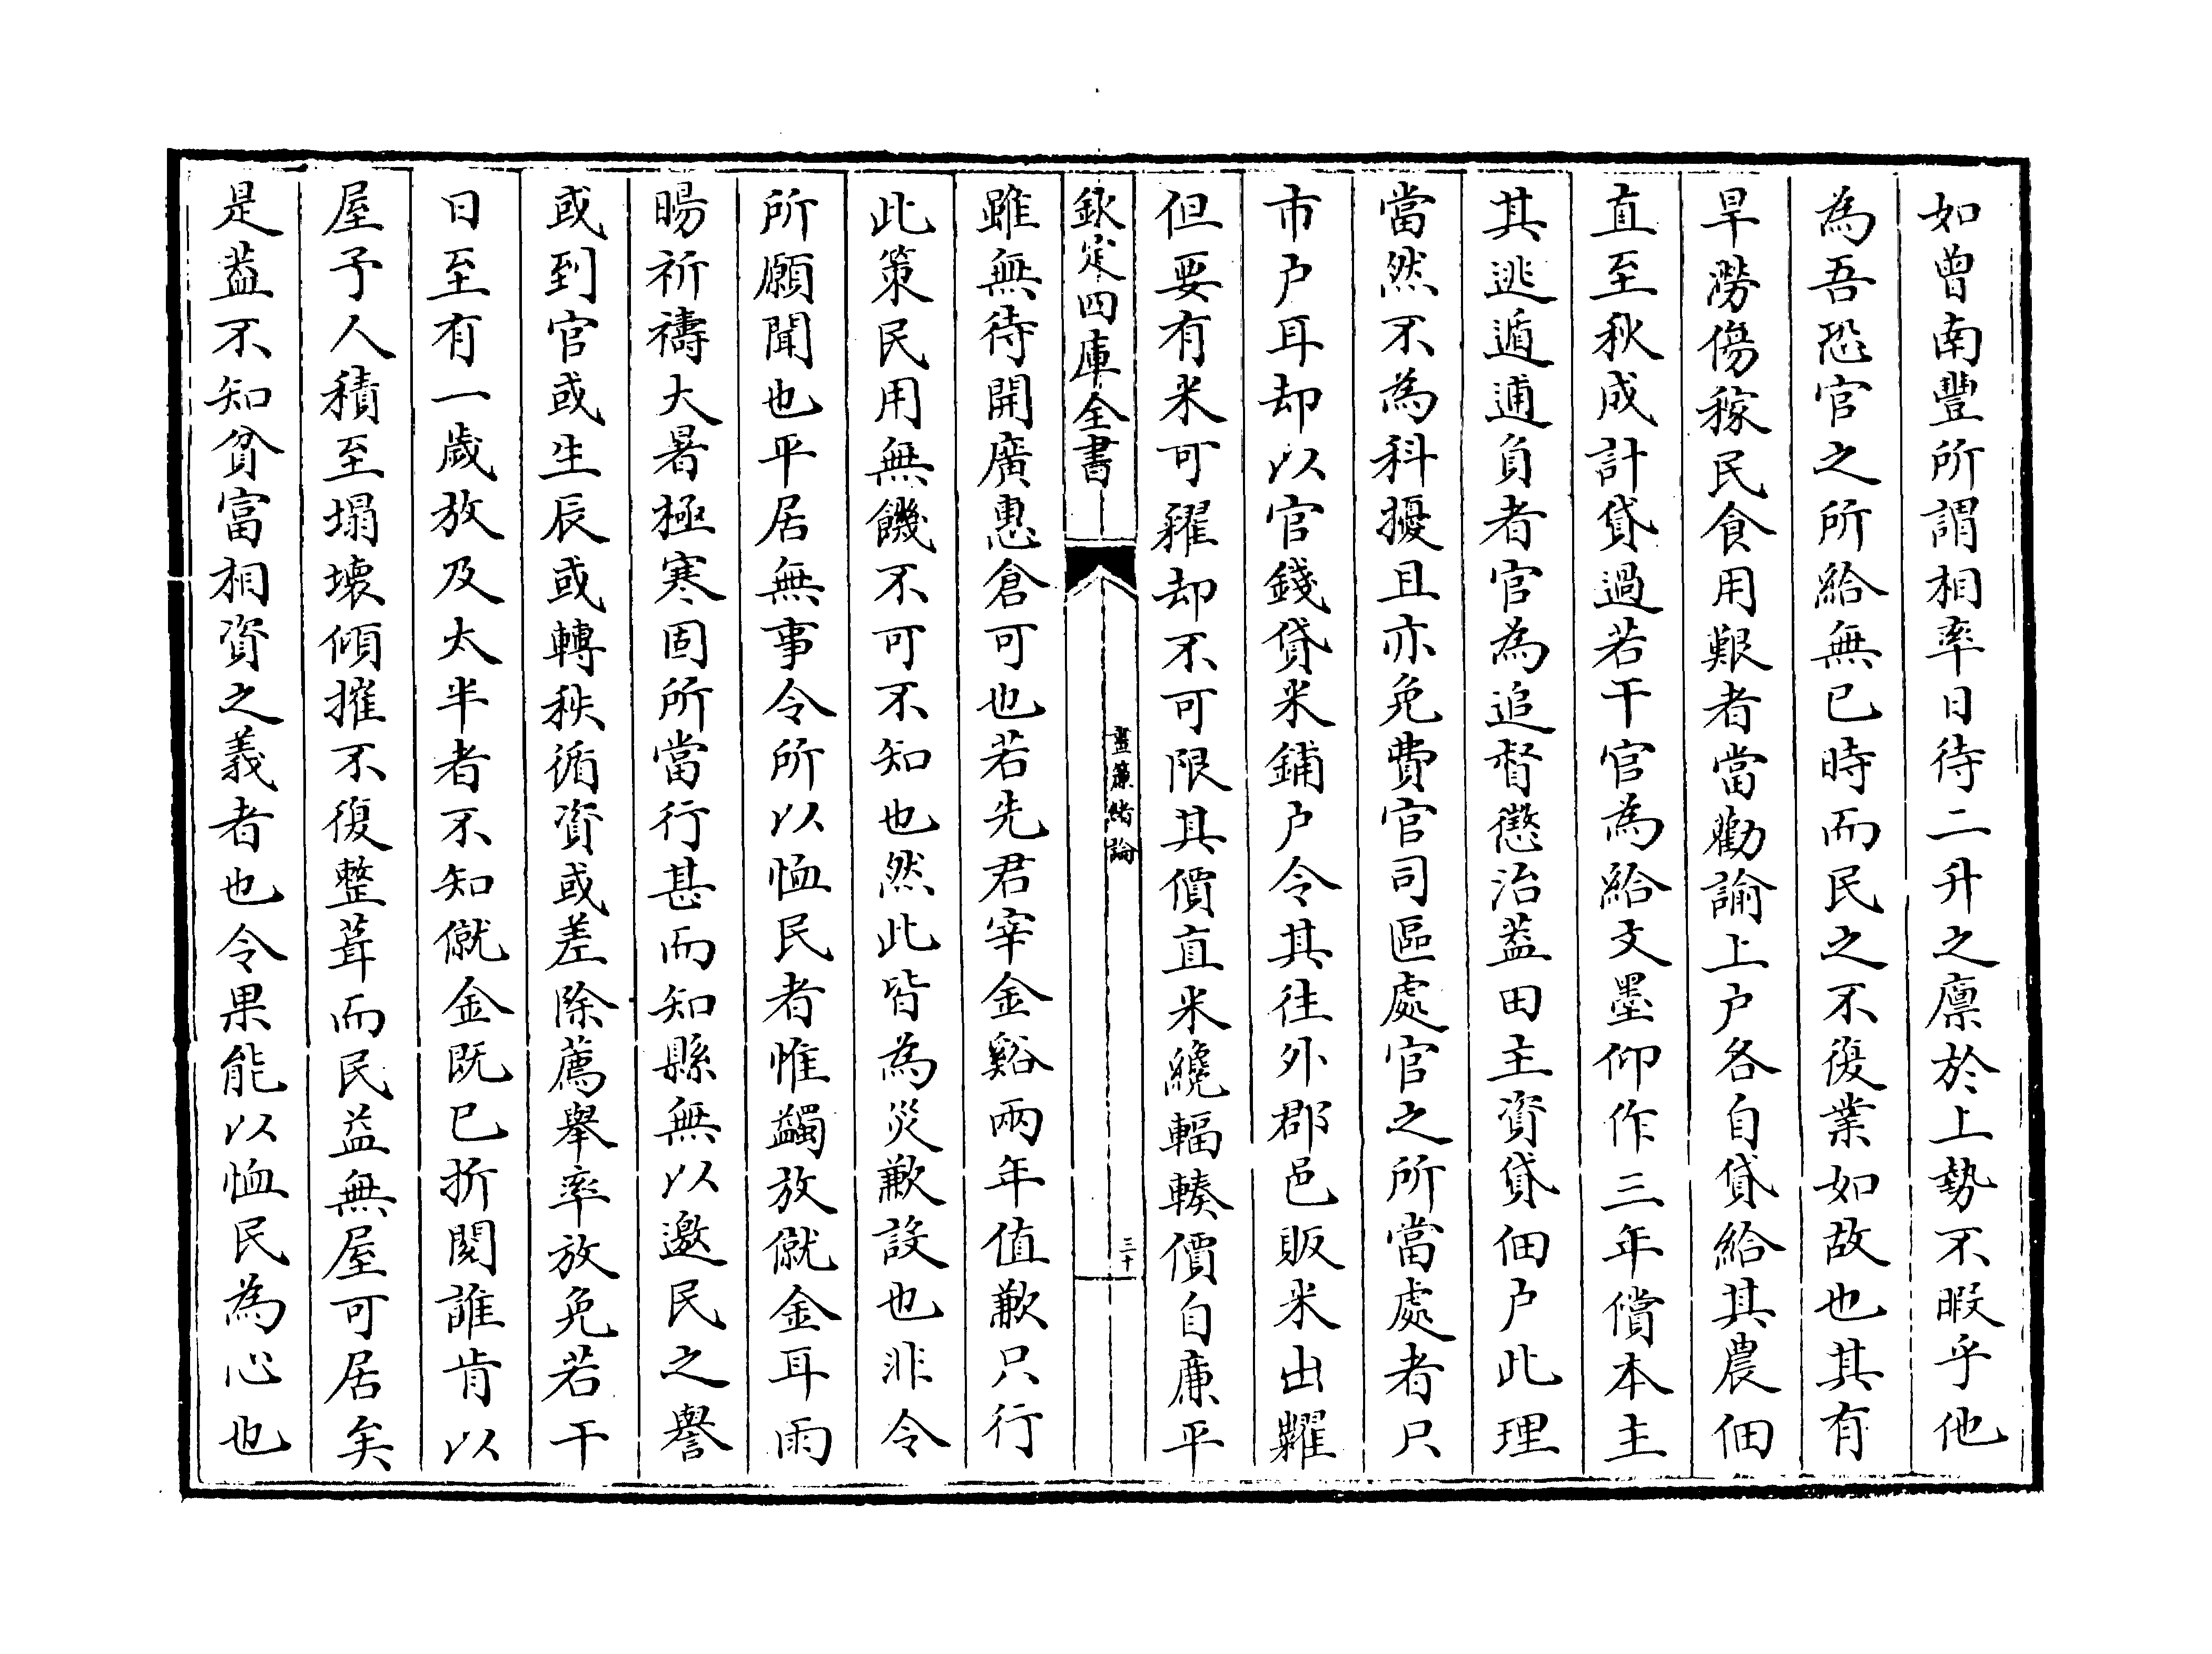 如曾南豐所謂相率日待二升之廩於上勢不暇乎他
為吾恐官之所給無已時而民之不復業如故也其有
旱澇傷稼民食用艱者當勸諭上户各自貸給其農佃
直至秋成計貸過若干官為給文墨仰作三年償本主
其逃遁逋負者官為追督懲治葢田主資貸佃户此理
當然不為科擾且亦免費官司區處官之所當處者只
市户耳却以官錢貸米鋪户令其往外郡邑販米出糶
但要有米可糴却不可限其價直米纔輻輳價自亷平
欽定四庫全書
晝簾緒論
三十
雖無待開廣惠倉可也若先君宰金谿兩年值歉只行
此策民用無饑不可不知也然此皆為災歉設也非令
所願聞也平居無事令所以恤民者惟蠲放僦金耳雨
暘祈禱大暑極寒固所當行甚而知縣無以邀民之譽
或到官或生辰或轉秩循資或差除薦舉率放免若干
日至有一歲放及太半者不知僦金既已折閱誰肯以
屋予人積至塌壞傾摧不復整葺而民益無屋可居矣
是葢不知貧富相資之義者也令果能以恤民為心也